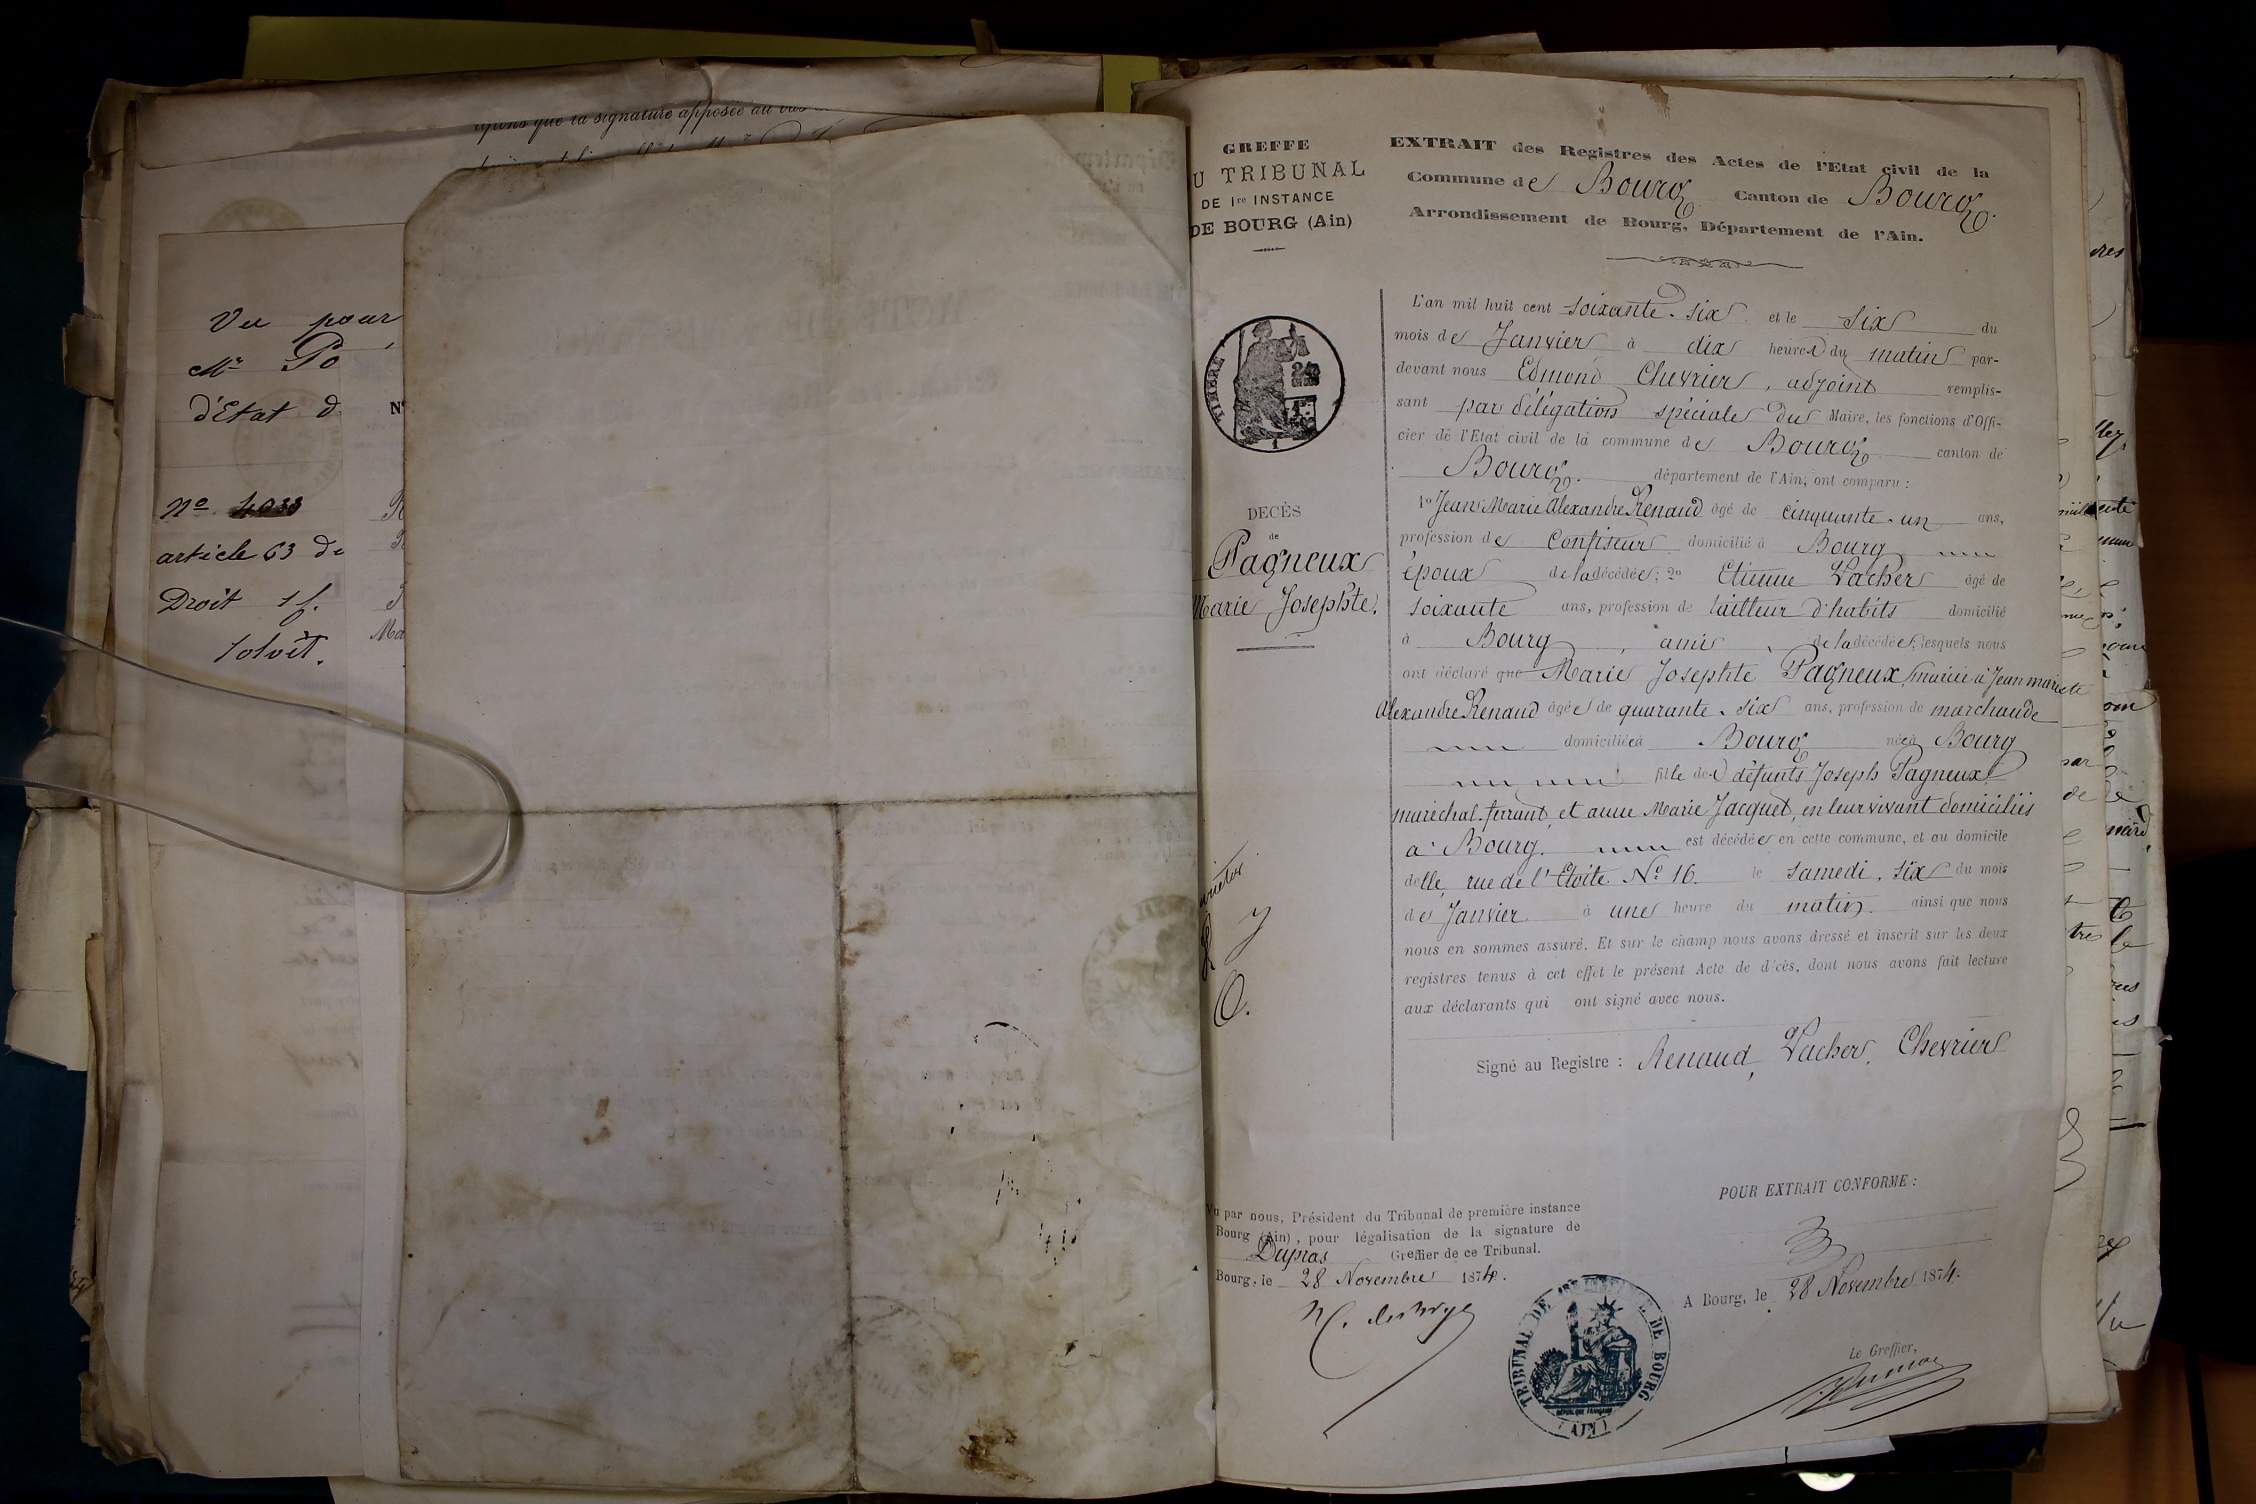 que la signature apposée au bas
Vu pour
Mr Po
d'Etat d
No
No 4033
article 63 du
Droit 1 f.
solvit.
GREFFE
U TRIBUNAL
DE 1re INSTANCE
DE BOURG (Ain)
TIMBRE
DECÈS
de
Pagneux
Marie Josephte.
EXTRAIT des Registres des Actes de l'Etat civil de la
Commune de Bourg Canton de Bourg.
Arrondissement de Bourg, Département de l'Ain.
L'an mil huit cent soixante-six et le six du
mois de Janvier à dix heures du matin par-
devant nous Edmond Chevrier, adjoint remplis-
sant par délégation spéciale du Maire, les fonctions d'Offi-
cier de l'Etat civil de la commune de Bourg canton de
Bourg. département de l'Ain, ont comparu :
1o Jean Marie Alexandre Renaud âgé de cinquante-un ans,
profession de Confiseur domicilié à Bourg
époux de la décédée; 2o Etienne Vacher âgé de
soixante ans, profession de tailleur d'habits domicilié
à Bourg, ami, de la décédée, lesquels nous
ont déclaré que Marie Josephte Pagneux, mariée à Jean marie
Alexandre Renaud âgée de quarante-six ans, profession de marchande
domiciliée à Bourg née à Bourg
fille de défunts Joseph Pagneux
maréchal-ferrant, et anne Marie Jacquet, en leur vivant domiciliés
à Bourg. est décédée en cette commune, et au domicile
delle, rue de l'Etoile No 16. le samedi, six du mois
de Janvier à une heure du matin ainsi que nous
nous en sommes assuré. Et sur le champ nous avons dressé et inscrit sur les deux
registres tenus à cet effet le présent Acte de décès, dont nous avons fait lecture
aux déclarants qui ont signé avec nous.
Signé au Registre : Renaud, Vacher, Chevrier
POUR EXTRAIT CONFORME :
Vu par nous, Président du Tribunal de première instance
Bourg (Ain), pour légalisation de la signature de
Dupras Greffier de ce Tribunal.
Bourg, le 28 Novembre 1874.
A Bourg, le 28 Novembre 1874.
Le Greffier,
TRIBUNAL DE 1re INSTANCE DE BOURG
RÉPUBLIQUE FRANÇAISE
(AIN)